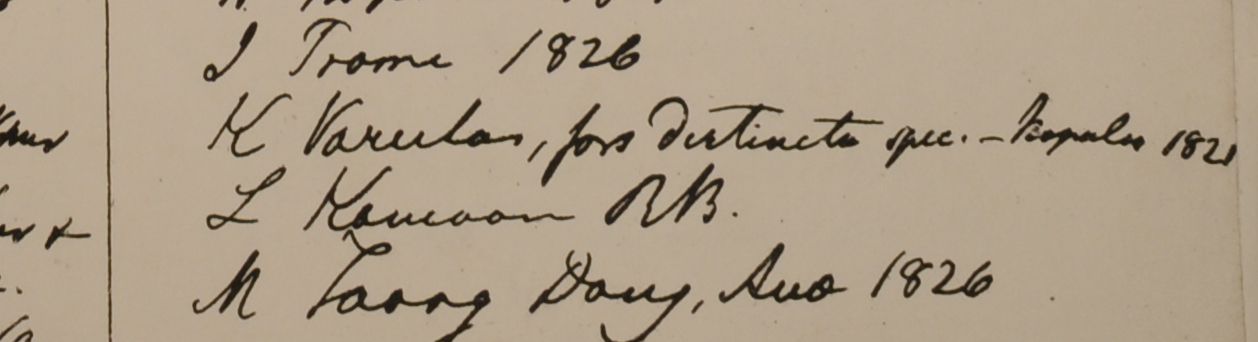 I Prome 1826
K Varietas, fors distincta spec. – Napalia 1821
L Kamaon RB.
M Taong Dong, Ava 1826